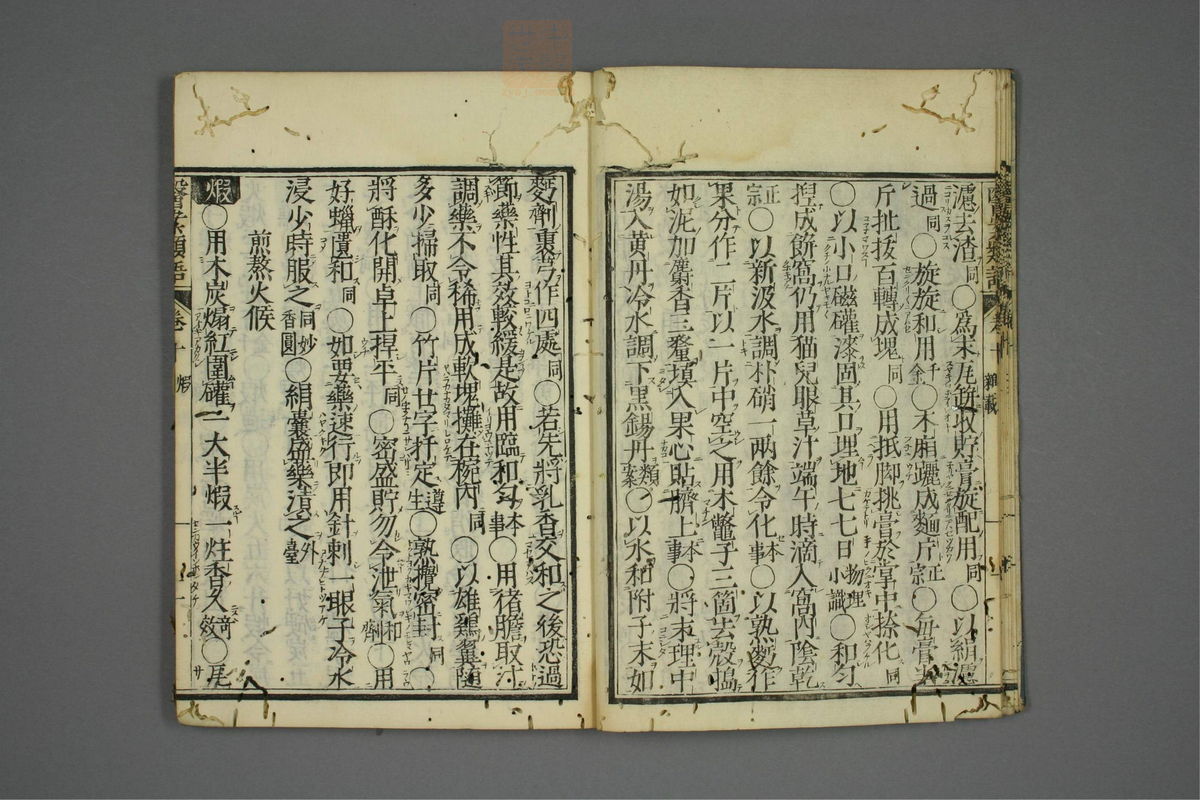 濾去渣同〇爲末瓦餅收貯膏旋配用同〇以絹濾
過同〇旋旋和用千金〇木廂躧成麺斤正宗〇每膏
斤扯拔百轉成塊同〇用抵脚挑膏於掌中捺化同
〇以小口磁礶漆固其口埋地七七日物理小識〇和匀
揑成餅窩仍用猫兒眼草汁端午時滴入窩內陰乾
正宗〇以新汲水調朴硝一兩餘令化本事〇以熟麪作
果分作二片以一片中空之用木鼈子三箇去殼搗
如泥加麝香三釐填入果心貼臍上本事〇將末理中
湯入黃丹冷水調下黑錫丹類案〇以水和附子末如
麪劑裹芎作四處同〇若先將乳香交和之後恐過
節藥性其效較緩是故用臨和本事〇用猪膽取汁
調藥不令稀用成軟塊攤在椀內同〇以雄雞翼隨
多少掃取同〇竹片廿字扞定遵生〇熟攪密封同〇
將酥化開卓上捍平同〇密盛貯勿令泄氣和劑〇用
好蠟匱和同〇如要藥速行即用針刺一眼子冷水
浸少時服之同妙香圓〇絹囊盛藥漬之外臺
煎熬火候
煆〇用木炭煽紅圍礶一大半煆一炷香久奇效〇尾
卷十
雜載
卷十
煆